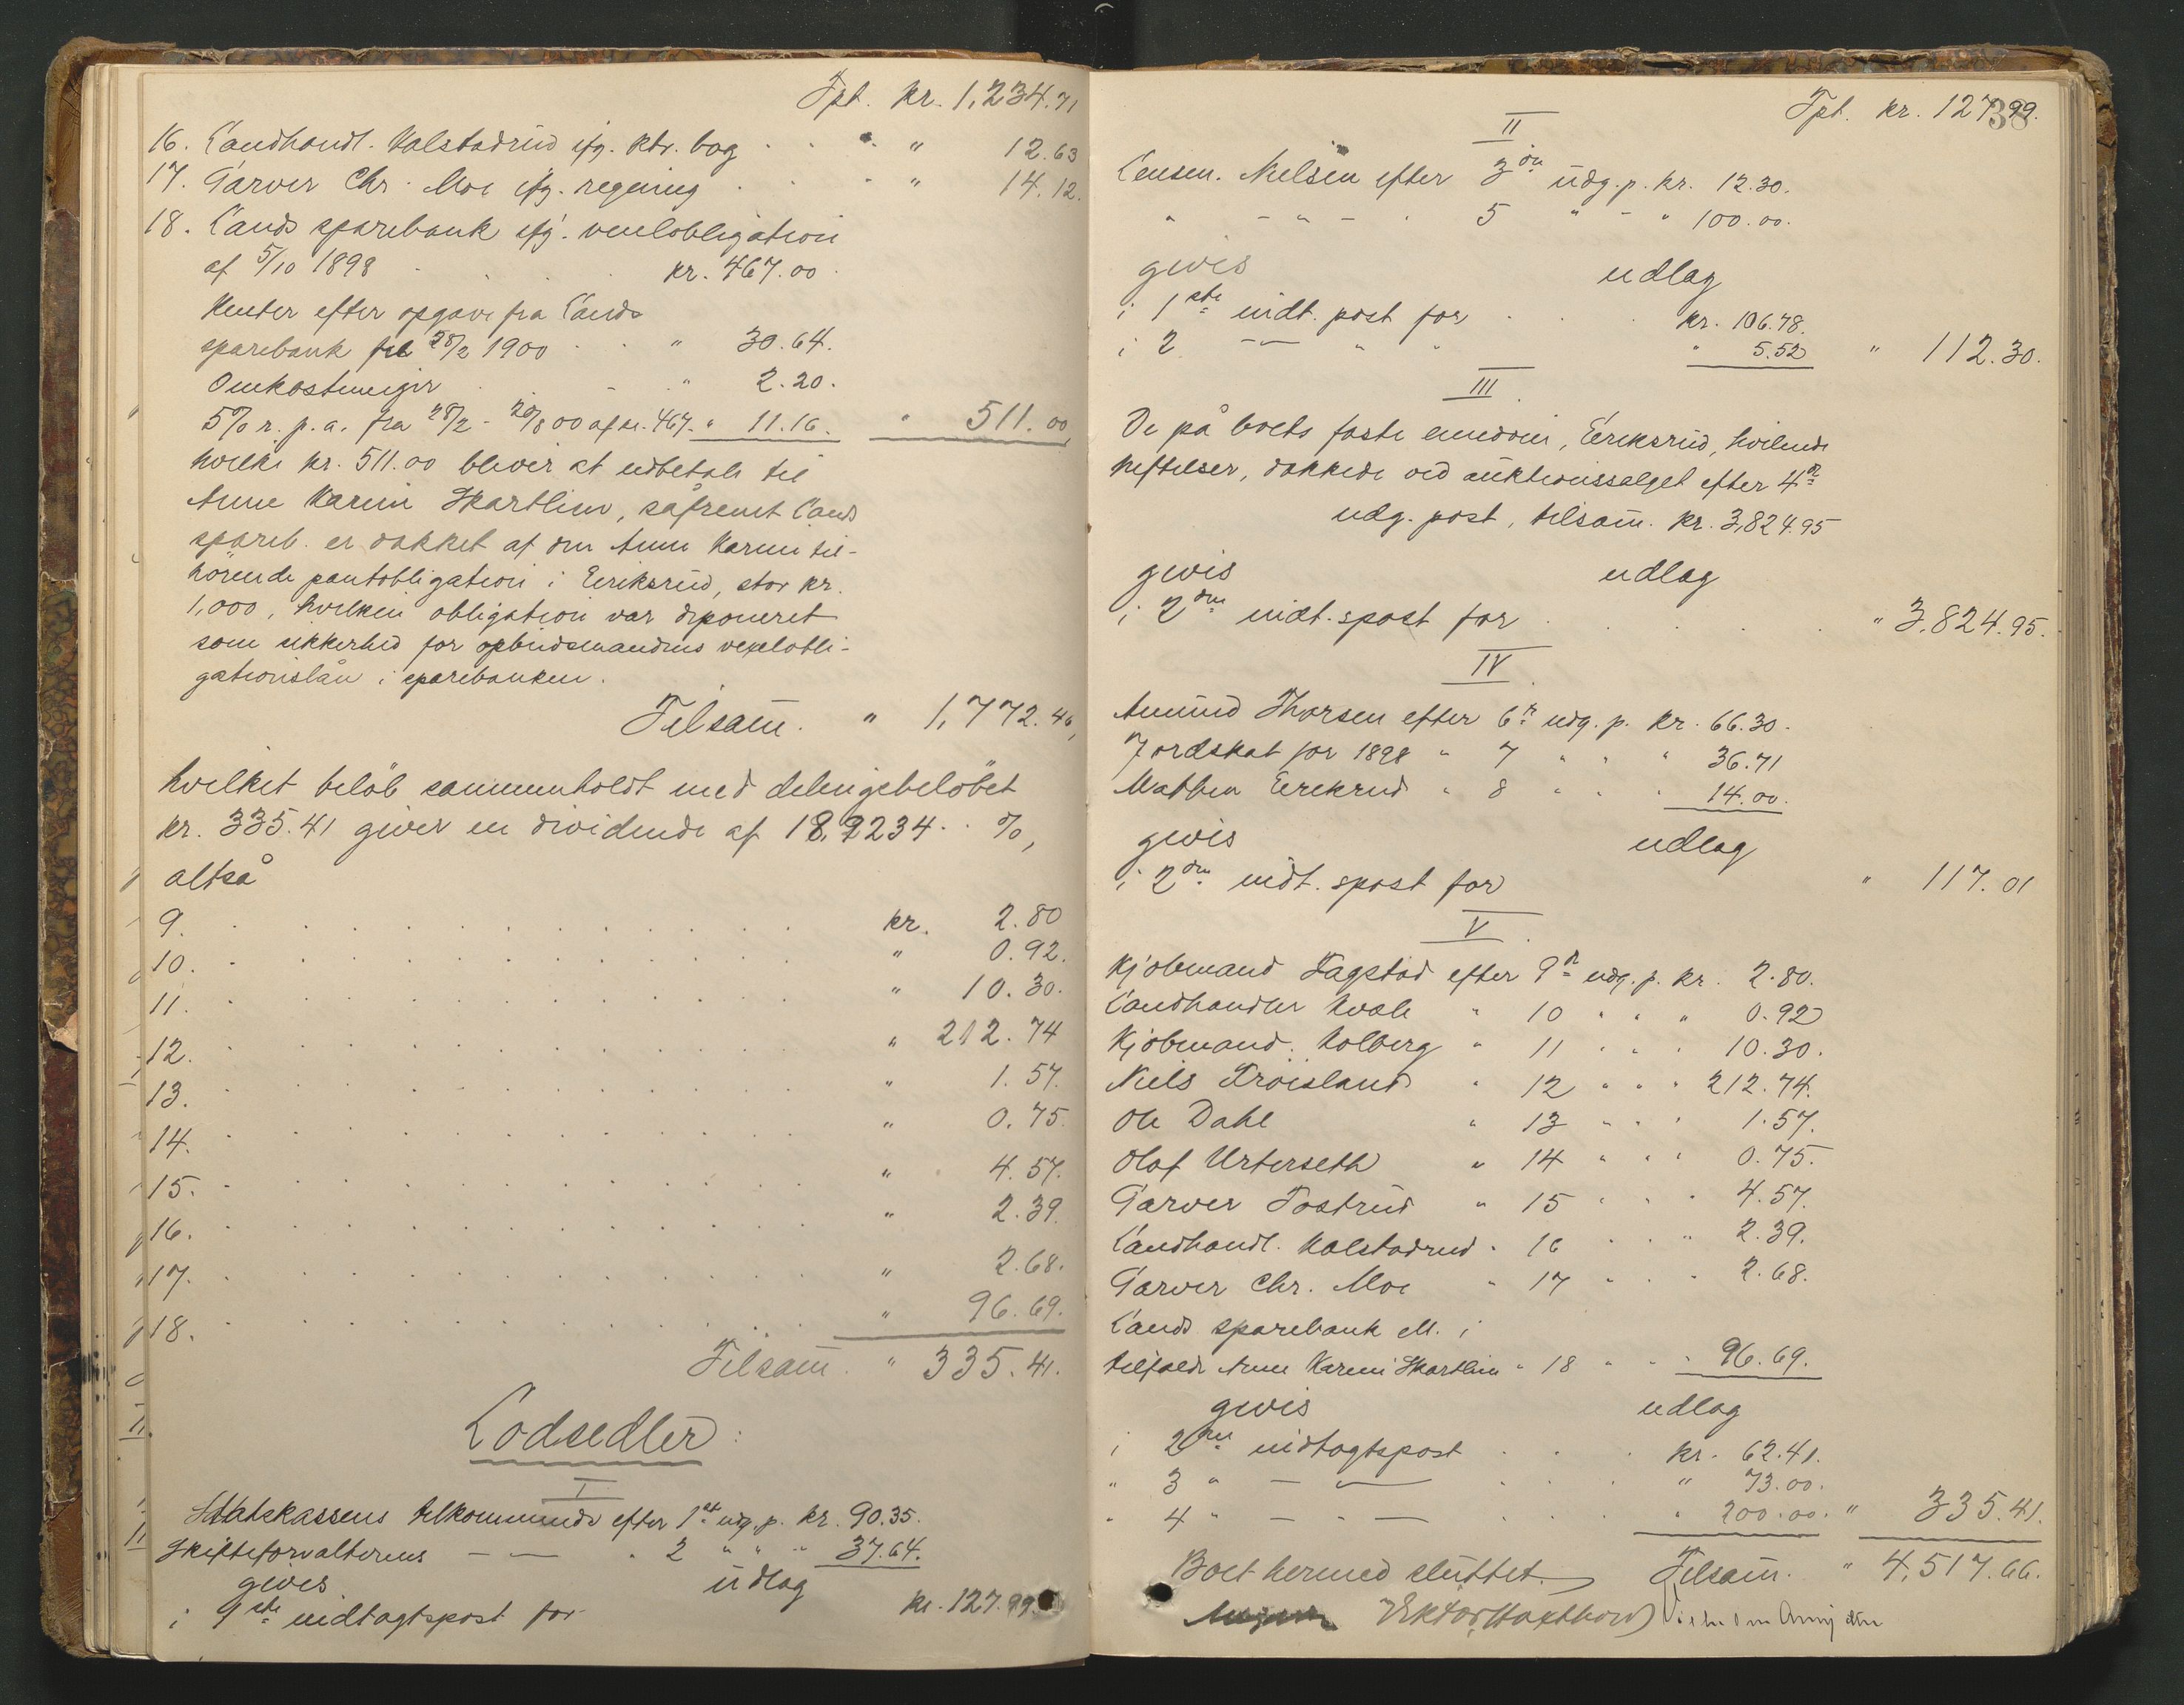 Tpt. kr. 1,234.71
16. Landhandl. Kolstadrud ifg. ktr. bog " 12.63
17. Garver Chr. Moe ifg. regning " 14.12.
18. Lands sparebank ifg. vexelobligation
af 5/10 1898 kr. 467.00.
Renter efter opgave fra Lands
sparebank til 28/2 1900 " 30.64.
Omkostninger " 2.20.
5% r. p. a. fra 28/2 - 20/8 00 af kr. 467. " 11.16. " 511.00,
hvilke kr. 511.00 bliver at udbetale til
Anne Karine Skartlien, såfremt Lands
spareb. er dækket af den Anne Karine til-
hörende pantobligation i Eriksrud, stor kr.
1,000, hvilken obligation var deponeret
som sikkerhed for opbudsmandens vexelobli-
gationslån i sparebanken.
Tilsam. " 1,772.46,
hvilket belöb sammenholdt med delingsbelöbet
kr. 335.41 giver en dividende af 18,9234 .. %,
altså
9. kr. 2.80
10. " 0.92.
11. " 10.30.
12. " 212.74
13. " 1.57.
14. " 0.75.
15. " 4.57.
16. " 2.39.
17. " 2.68.
18. " 96.69.
Tilsam. " 335.41.
Lodsedler:
I
Statskassens tilkommende efter 1st udg. p. kr. 90.35.
Skifteforvalterens — — " 2 " " " 37.64.
gives udlag
i 1ste indtægtspost for kr. 127.99.
Tpt. kr. 127.99.
38
II
Lensm. Nielsen efter 3die udg. p. kr. 12.30.
" - " - " 5 " - " 100.00.
gives udlag
i 1ste indt. post for kr. 106.78.
i 2 — " " " 5.52 " 112.30.
III
De på boets faste eiendom, Eriksrud, hvilende
heftelser, dækkede ved auktionssalget efter 4de
udg. post, tilsam. kr. 3,824.95
gives udlag
i 2den indt. spost for " 3,824.95.
IV
Amund Thorsen efter 6te udg. p. kr. 66.30.
Jordskat for 1898 " 7 " " " 36.71
Mathea Erikrud " 8 " " " 14.00.
gives udlag
i 2den indt. spost for " 117.01
V
Kjöbmand Fagstad efter 9de udg. p. kr. 2.80.
Landhandler Kvale " 10 " " " 0.92
Kjöbmand Kolberg " 11 " " " 10.30.
Niels Fröisland " 12 " " " 212.74.
Ole Dahl " 13 " " " 1.57.
Olof Urterseth " 14 " " " 0.75.
Garver Tostrud " 15 " " " 4.57.
Landhandl. Kolstadrud " 16 " " " 2.39.
Garver Chr. Moe " 17 " " " 2.68.
Lands sparebank ell. i
tilfælde Anne Karine Skartlien " 18 " " " 96.69.
gives udlag
i 2den indtægtspost kr. 62.41.
" 3 " — — " 73.00.
" 4 " — — " 200.00. " 335.41.
Boet hermed sluttet. Tilsam. " 4,517.66.